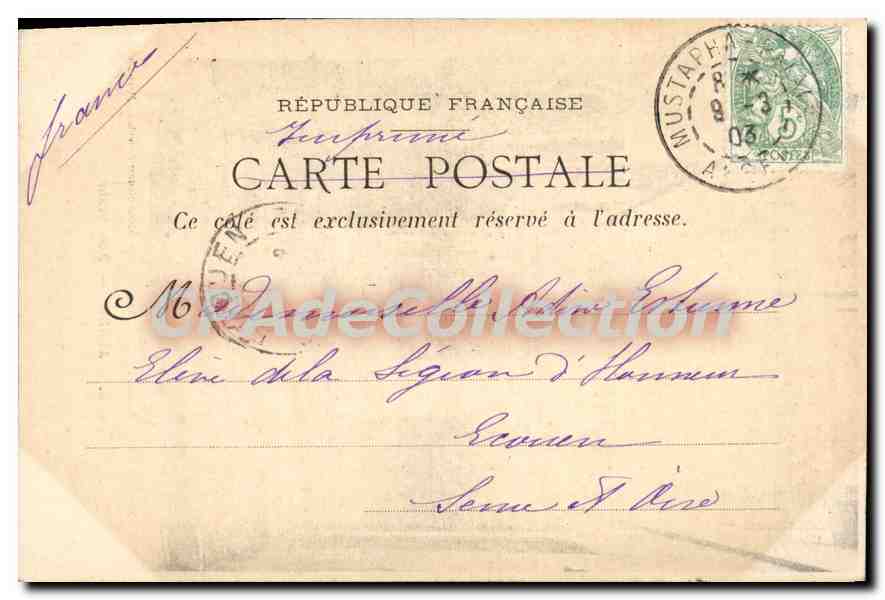 france
RÉPUBLIQUE FRANÇAISE
Imprimé
CARTE POSTALE
Ce côté est exclusivement réservé à l'adresse.
MUSTAPHA
8
9 -3
03
5
POSTES
OUEN
Mademoiselle
CPAdeCollection
Elève de la Légion d'Honneur
Ecouen
Seine et Oise